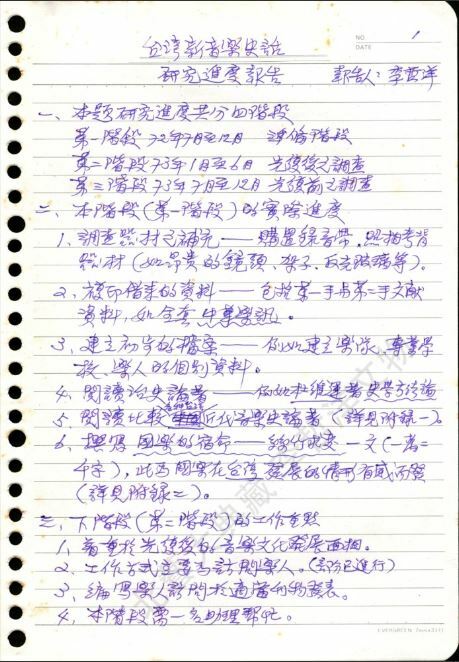 NO. 1
DATE
台湾新音樂史話
研究進度報告 報告人：李哲洋
一、本題研究進度共分四階段
第一階段 72年7月至12月 準備階段
第二階段 73年1月至6月 光復後之調查
第三階段 73年7月至12月 光復前之調查
二、本階段（第一階段）的實際進度
1、調查器材之補充——購置錄音帶，照相
器材（如昂貴的鏡頭、架子、反光玻璃等）。
2、複印借來的資料——包括第一手与第二手文献
資料，如全套
3、建立初步的檔案——例如建立樂隊、專業學
校、樂人的個別資料。
4、閱讀治史論著——例如杜維運著史學方法論
5、閱讀比較 近代音樂史論著（詳見附錄一）。
6、撰寫國樂的宿命—— 一文（一萬二
千字），此乃國樂在台湾發展的情形有感而發
（詳見附錄二）。
三、下階段（第二階段）的工作重點
1、着重於光復後的音樂文化發展面相。
2、工作方式主要乃訪問樂人。（ 進行）
3、編寫樂人訪問於適當刊物發表。
4、本階段需一名助理幫忙。
EVERGREEN